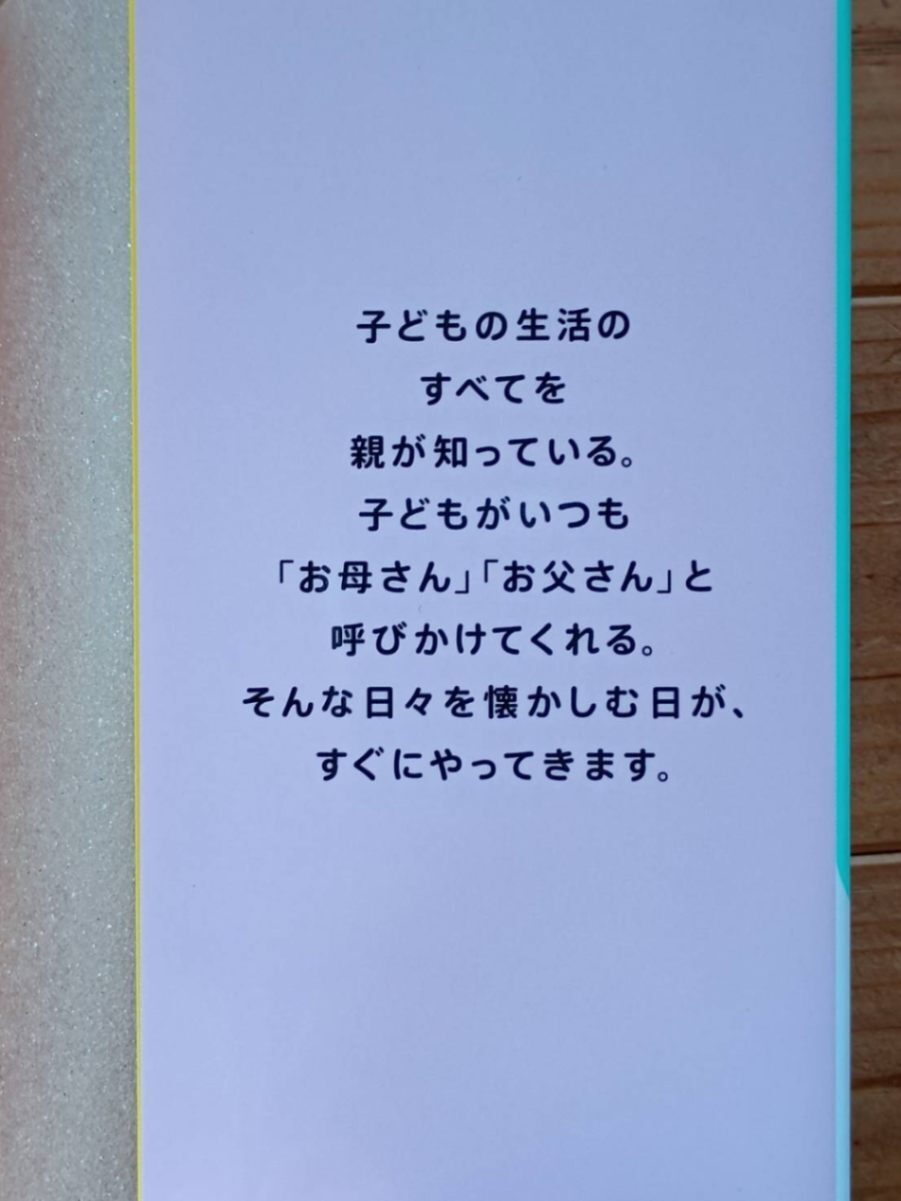 子どもの生活の
すべてを
親が知っている。
子どもがいつも
「お母さん」「お父さん」と
呼びかけてくれる。
そんな日々を懐かしむ日が、
すぐにやってきます。